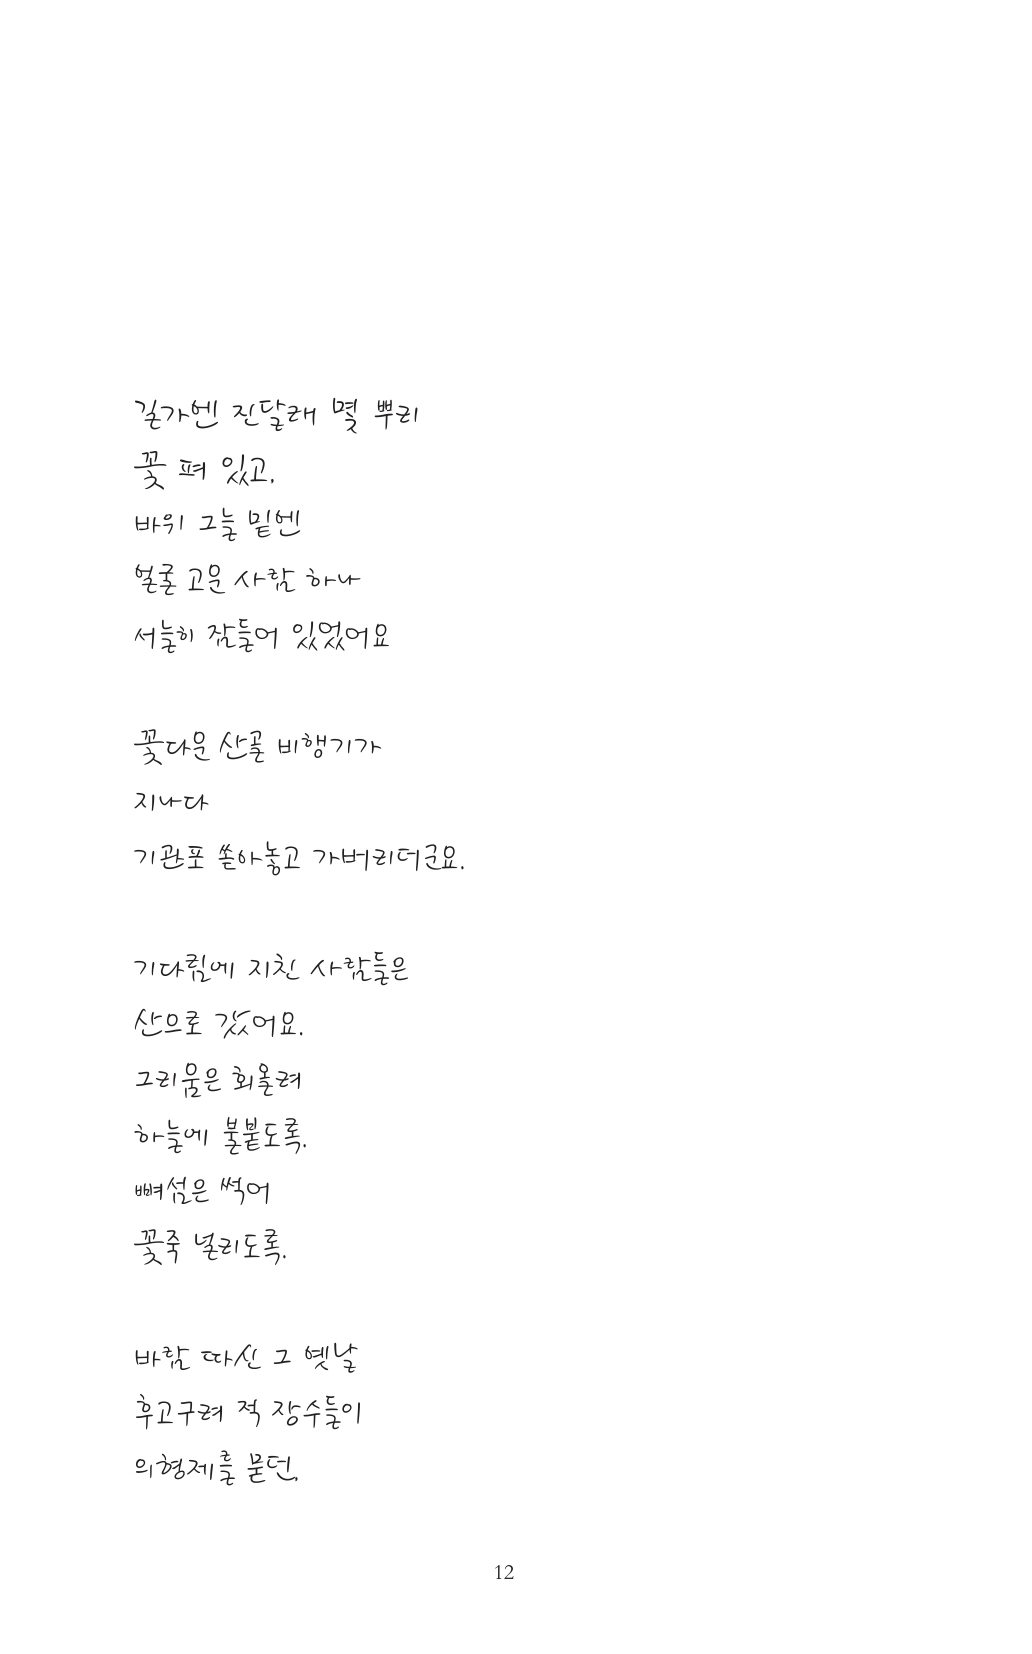 길가엔 진달래 몇 뿌리
꽃 펴 있고,
바위 그늘 밑엔
얼굴 고운 사람 하나
서늘히 잠들어 있었어요
꽃다운 산골 비행기가
지나다
기관포 쏟아놓고 가버리더군요.
기다림에 지친 사람들은
산으로 갔어요.
그리움은 회올려
하늘에 불붙도록.
뼈섬은 썩어
꽃죽 널리도록.
바람 따신 그 옛날
후고구려 적 장수들이
의형제를 묻던,
12